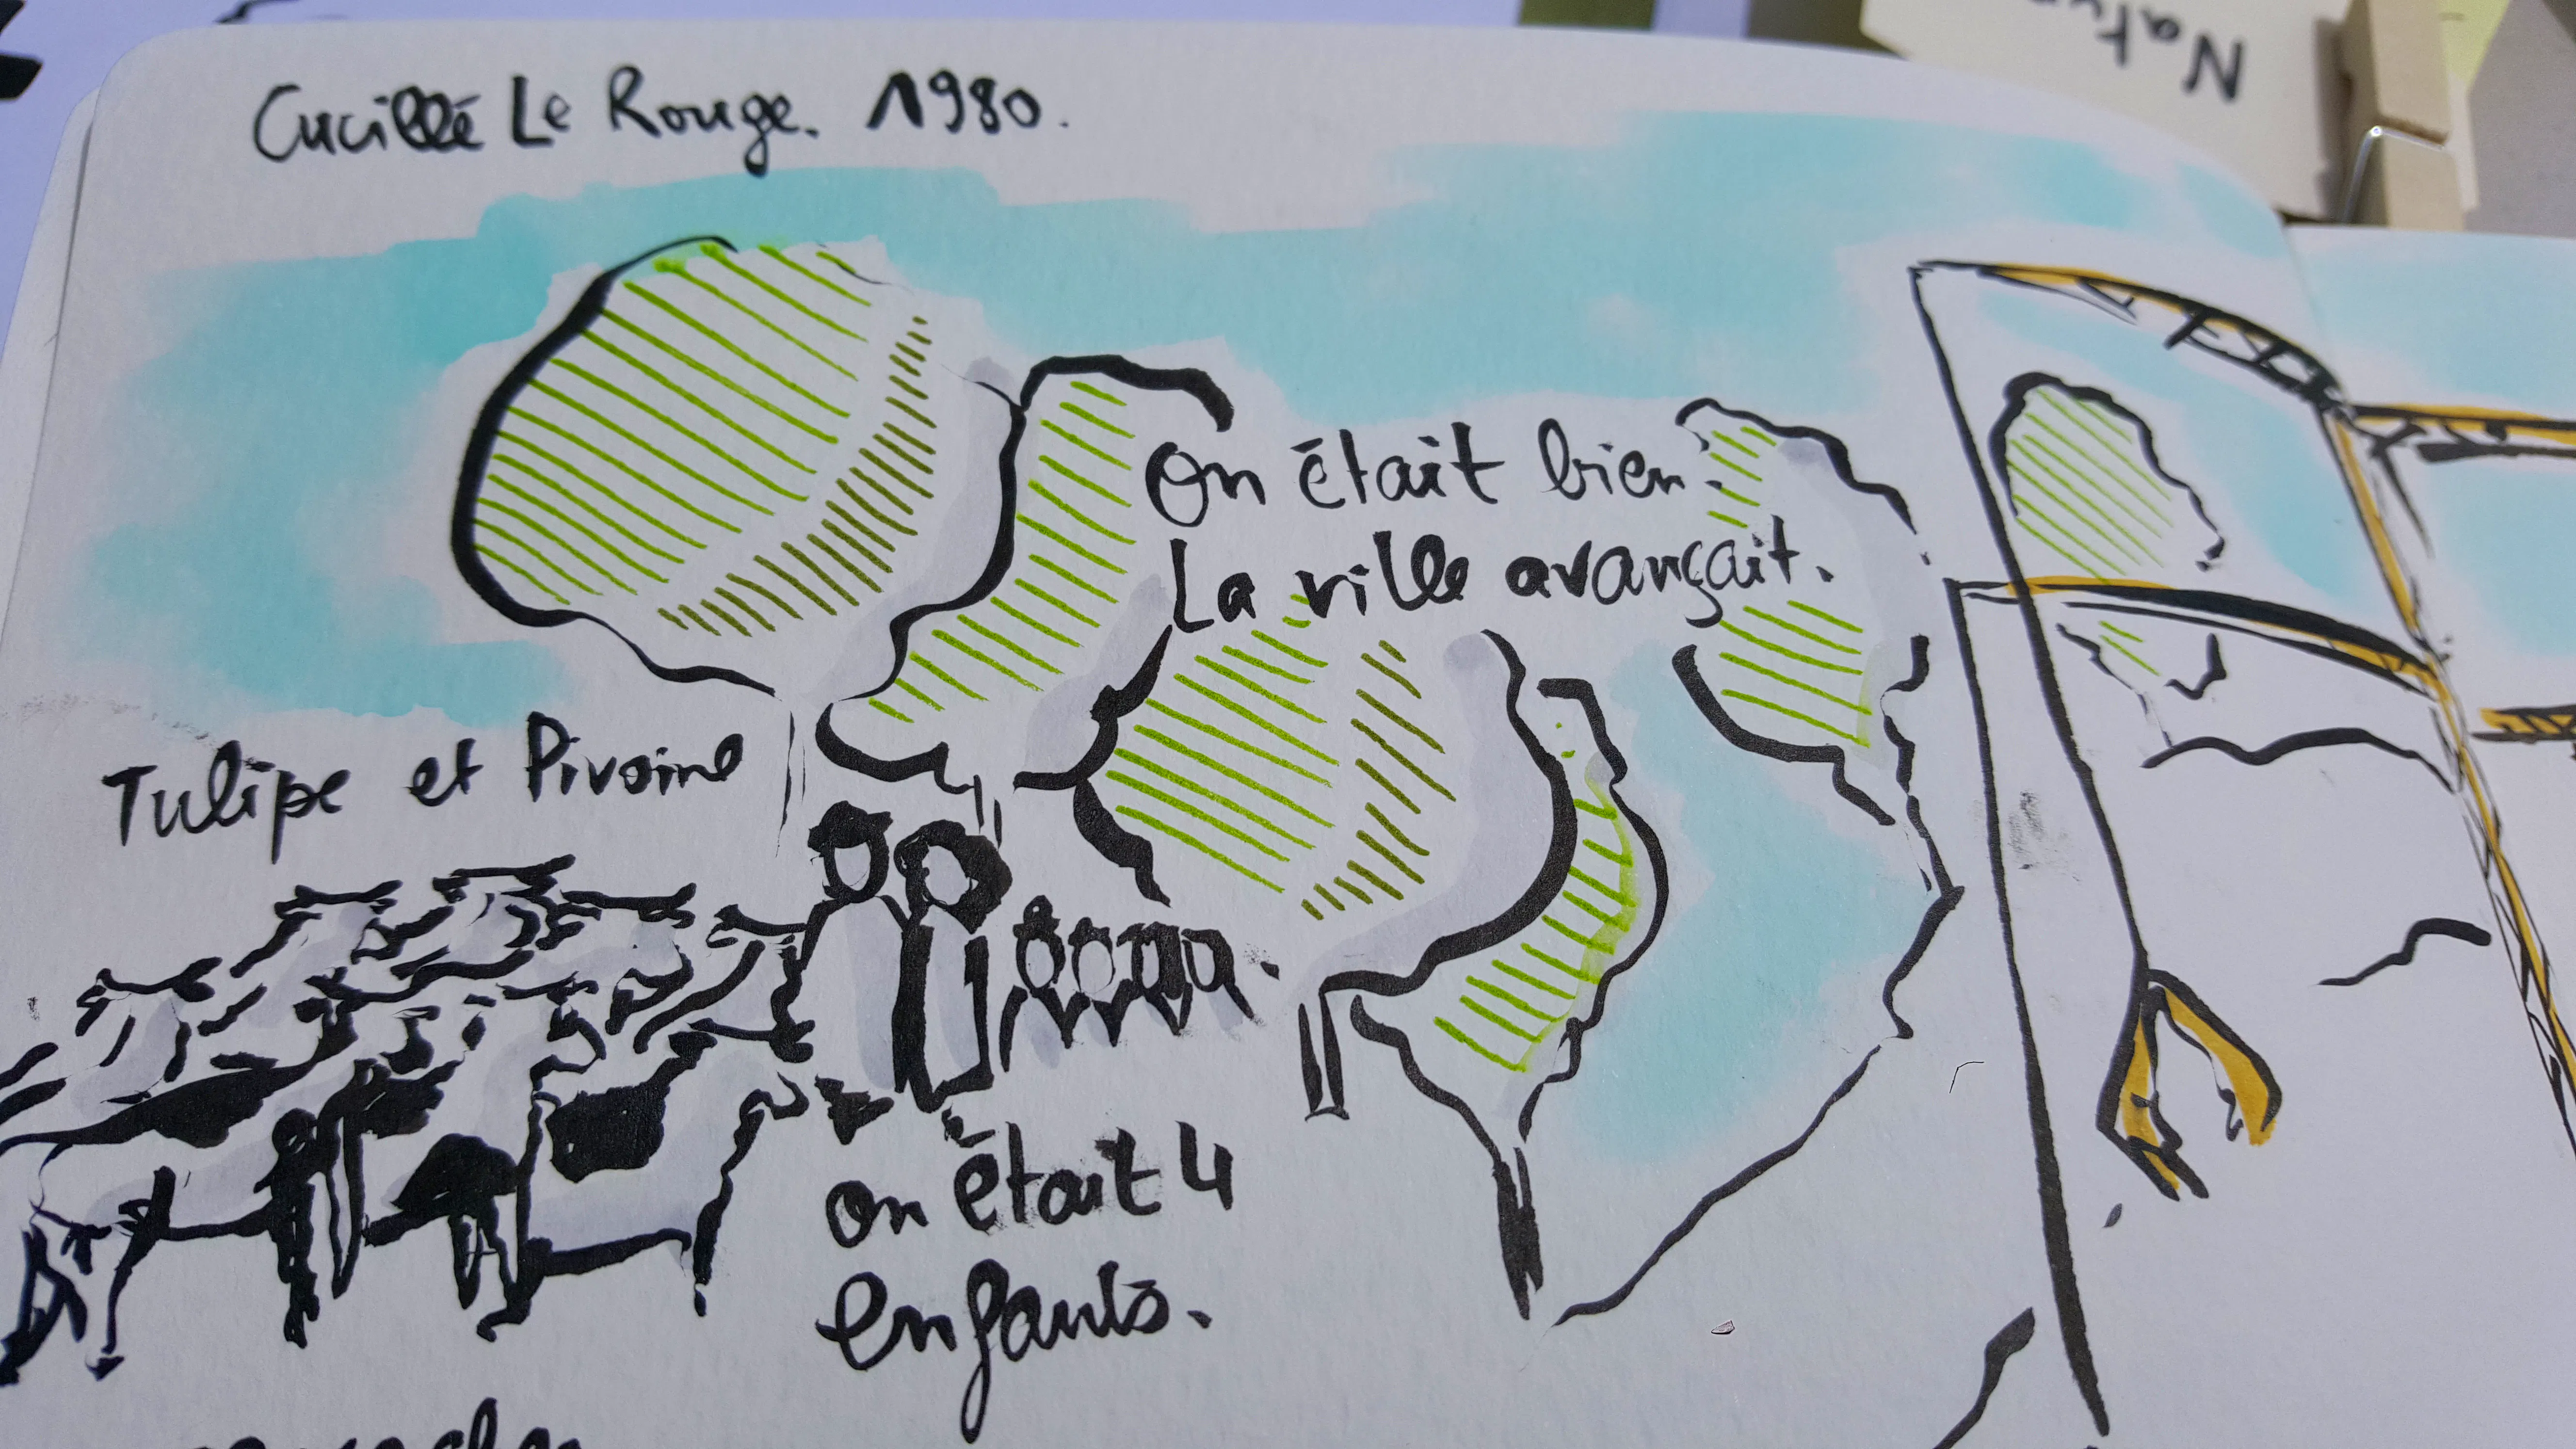 Cucillé Le Rouge. 1980.
On était bien.
La ville avançait.
Tulipe et Pivoine
on était 4
enfants.
Natu